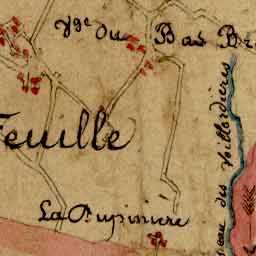 Vge du Bas Br
Feuille
La Rupinière
eau des Vaillordières